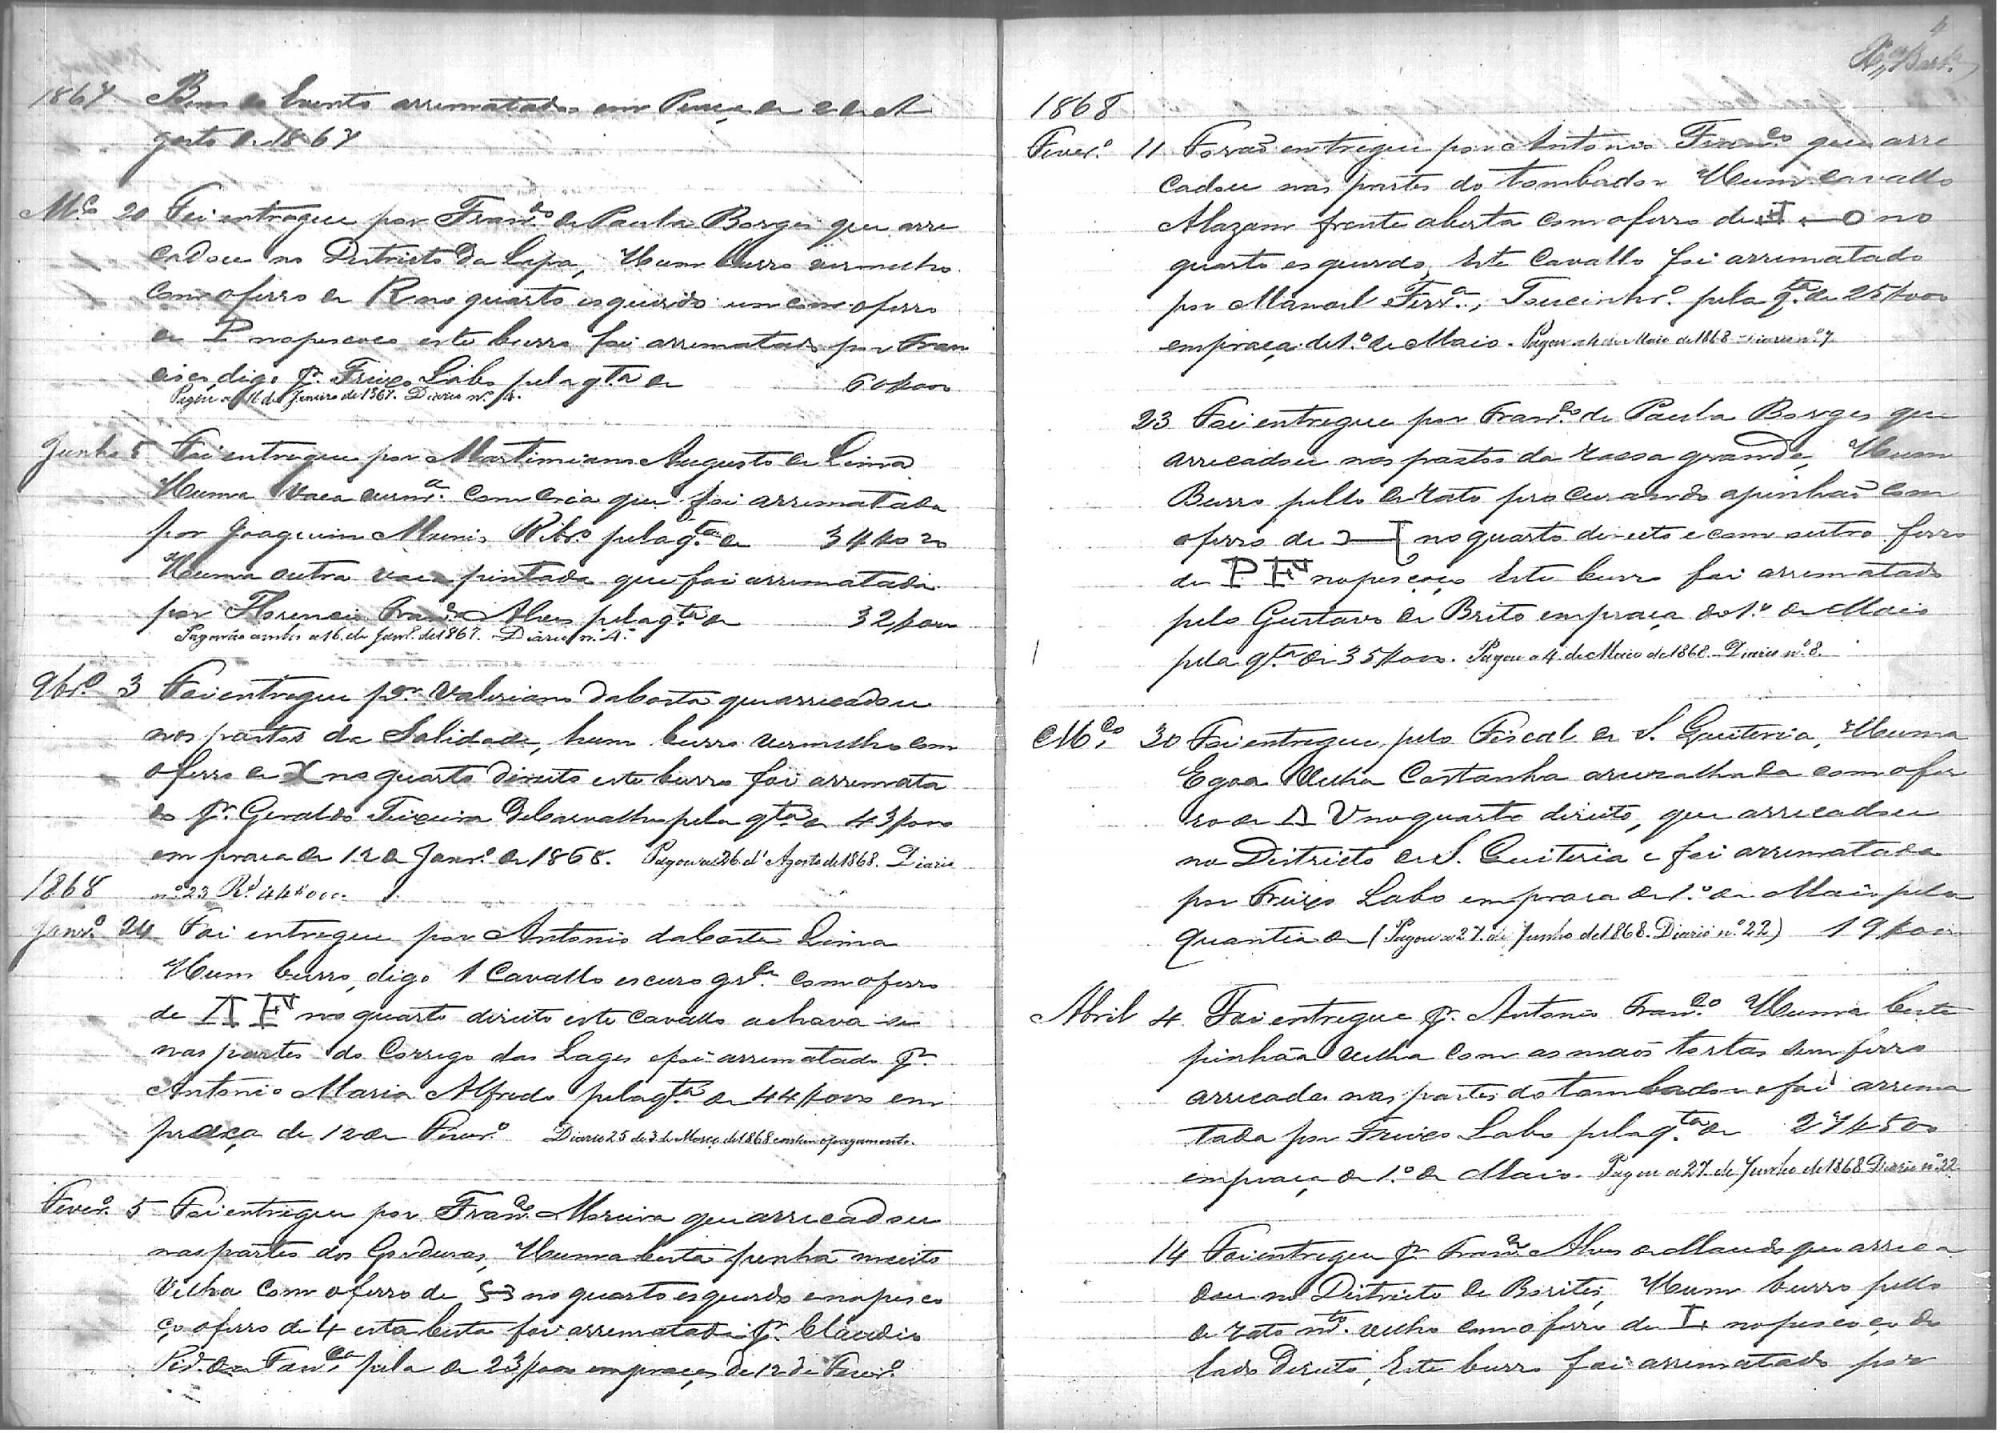 1867 Bens do Evento arrematados em Praça de 2 de A
gosto de 1867
Mço 20 Foi entregue por Franco de Paula Borges que arre
cadou no Districto da Lapa, Hum burro vermelho
com o ferro de R no quarto esquerdo com o ferro
de P no pescoço este burro foi arrematado por Fran
cisco, digo pr. Freixo Lobo pela qta de 60$000
Pagou a 16 de Janeiro de 1867. Diario nº 4.
Junho 5 Foi entregue por Martimiano Augusto de Lima
Huma Vaca verma. com cria que foi arrematada
por Joaquim Munis Ribro. pela qta. de
Huma outra vaca pintada que foi arrematada
por Florencio Franco Alves pela qta de 32$000
Pagarão ambos a 16 de Janro. de 1867. Diario nº 4.
9brº 3 Foi entregue por Valeriano da Costa que arrecadou
nos pastos da Solidade, hum burro vermelho com
o ferro de X no quarto direito este burro foi arremata
do pr. Geraldo Teixeira de Carvalho pela qta de 43$000
em praca de 12 de Janrº. de 1868. Pagou a 26 d'Agosto de 1868. Diario
nº 23 Rs 44$000.
1868
Janrº. 24 Foi entregue por Antonio da Costa Lima
Hum burro, digo 1 Cavallo escuro grde. com o ferro
de A F no quarto direito este cavallo achava-se
nas partes do Corrego das Lages e foi arrematado pr.
Antonio Maria Alfredo pela qta. de 44$000 em
praça de 12 de Feverº. Diario 25 de 3 de Março de 1868 consta o pagamento.
Feverº. 5 Foi entregue por Franco. Moreira que arrecadou
nas partes dos Gorduras, Huma besta pinhã muito
Velha com o ferro de no quarto esquerdo e no pesco
ço o ferro de 4 esta besta foi arrematada pr. Claudio
pela de 23$000 em praça de 12 de Feverº.
4
1868
Feverº. 11 Forão entregue por Antonio Franco que arre
cadou nas partes do tombador Hum cavallo
Alazam frente aberta com o ferro de no
quarto esquerdo, Este Cavallo foi arrematado
por Manoel Ferra., Toucinhrº. pela qta. de 25$000
em praça de 1º. de Maio. Pagou a 4 de Maio de 1868 - Diario nº 7
23 Foi entregue por Franco. de Paula Borges que
arrecadou nos pastos da rossa grande, Hum
Burro pello de rato procurando a pinhão com
o ferro de no quarto direito e com outro ferro
de P F no pescoço Este burro foi arrematado
pelo Gustavo de Brito em praça do 1º de Maio
pela qta de 35$000. Pagou a 4 de Maio de 1868. Diario nº 8.
Mço. 30 Foi entregue pelo Fiscal de S. Quiteria, Huma
Egoa Velha Castanha com o fer
ro de A V no quarto direito, que arrecadou
no Districto de S. Quiteria e foi arrematada
por Freixo Lobo em praca de 1º de Maio pela
quantia de (Pagou a 27 de Junho de 1868. Diario nº 22) 19$000
Abril 4 Foi entregue pr. Antonio Franco. Huma besta
pinhãa velha com as maos tortas sem ferro
arrecada nas partes do tombador e foi arrema
tada por Freixo Lobo pela qta de 27$500
em praça de 1º de Maio. Pagou a 27 de Junho de 1868 Diario nº 22
14 Foi entregue pr. Franco. Alves de Macedo que arreca
dou no Districto de Borites, Hum burro pello
de rato mto. velho com o ferro de I no pescoço do
lado direito, Este burro foi arrematado por